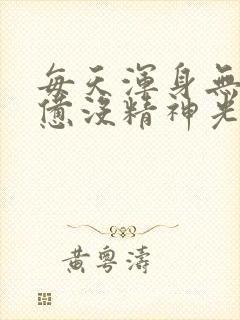 每天渾身無
憊沒精神老
黃粵濤